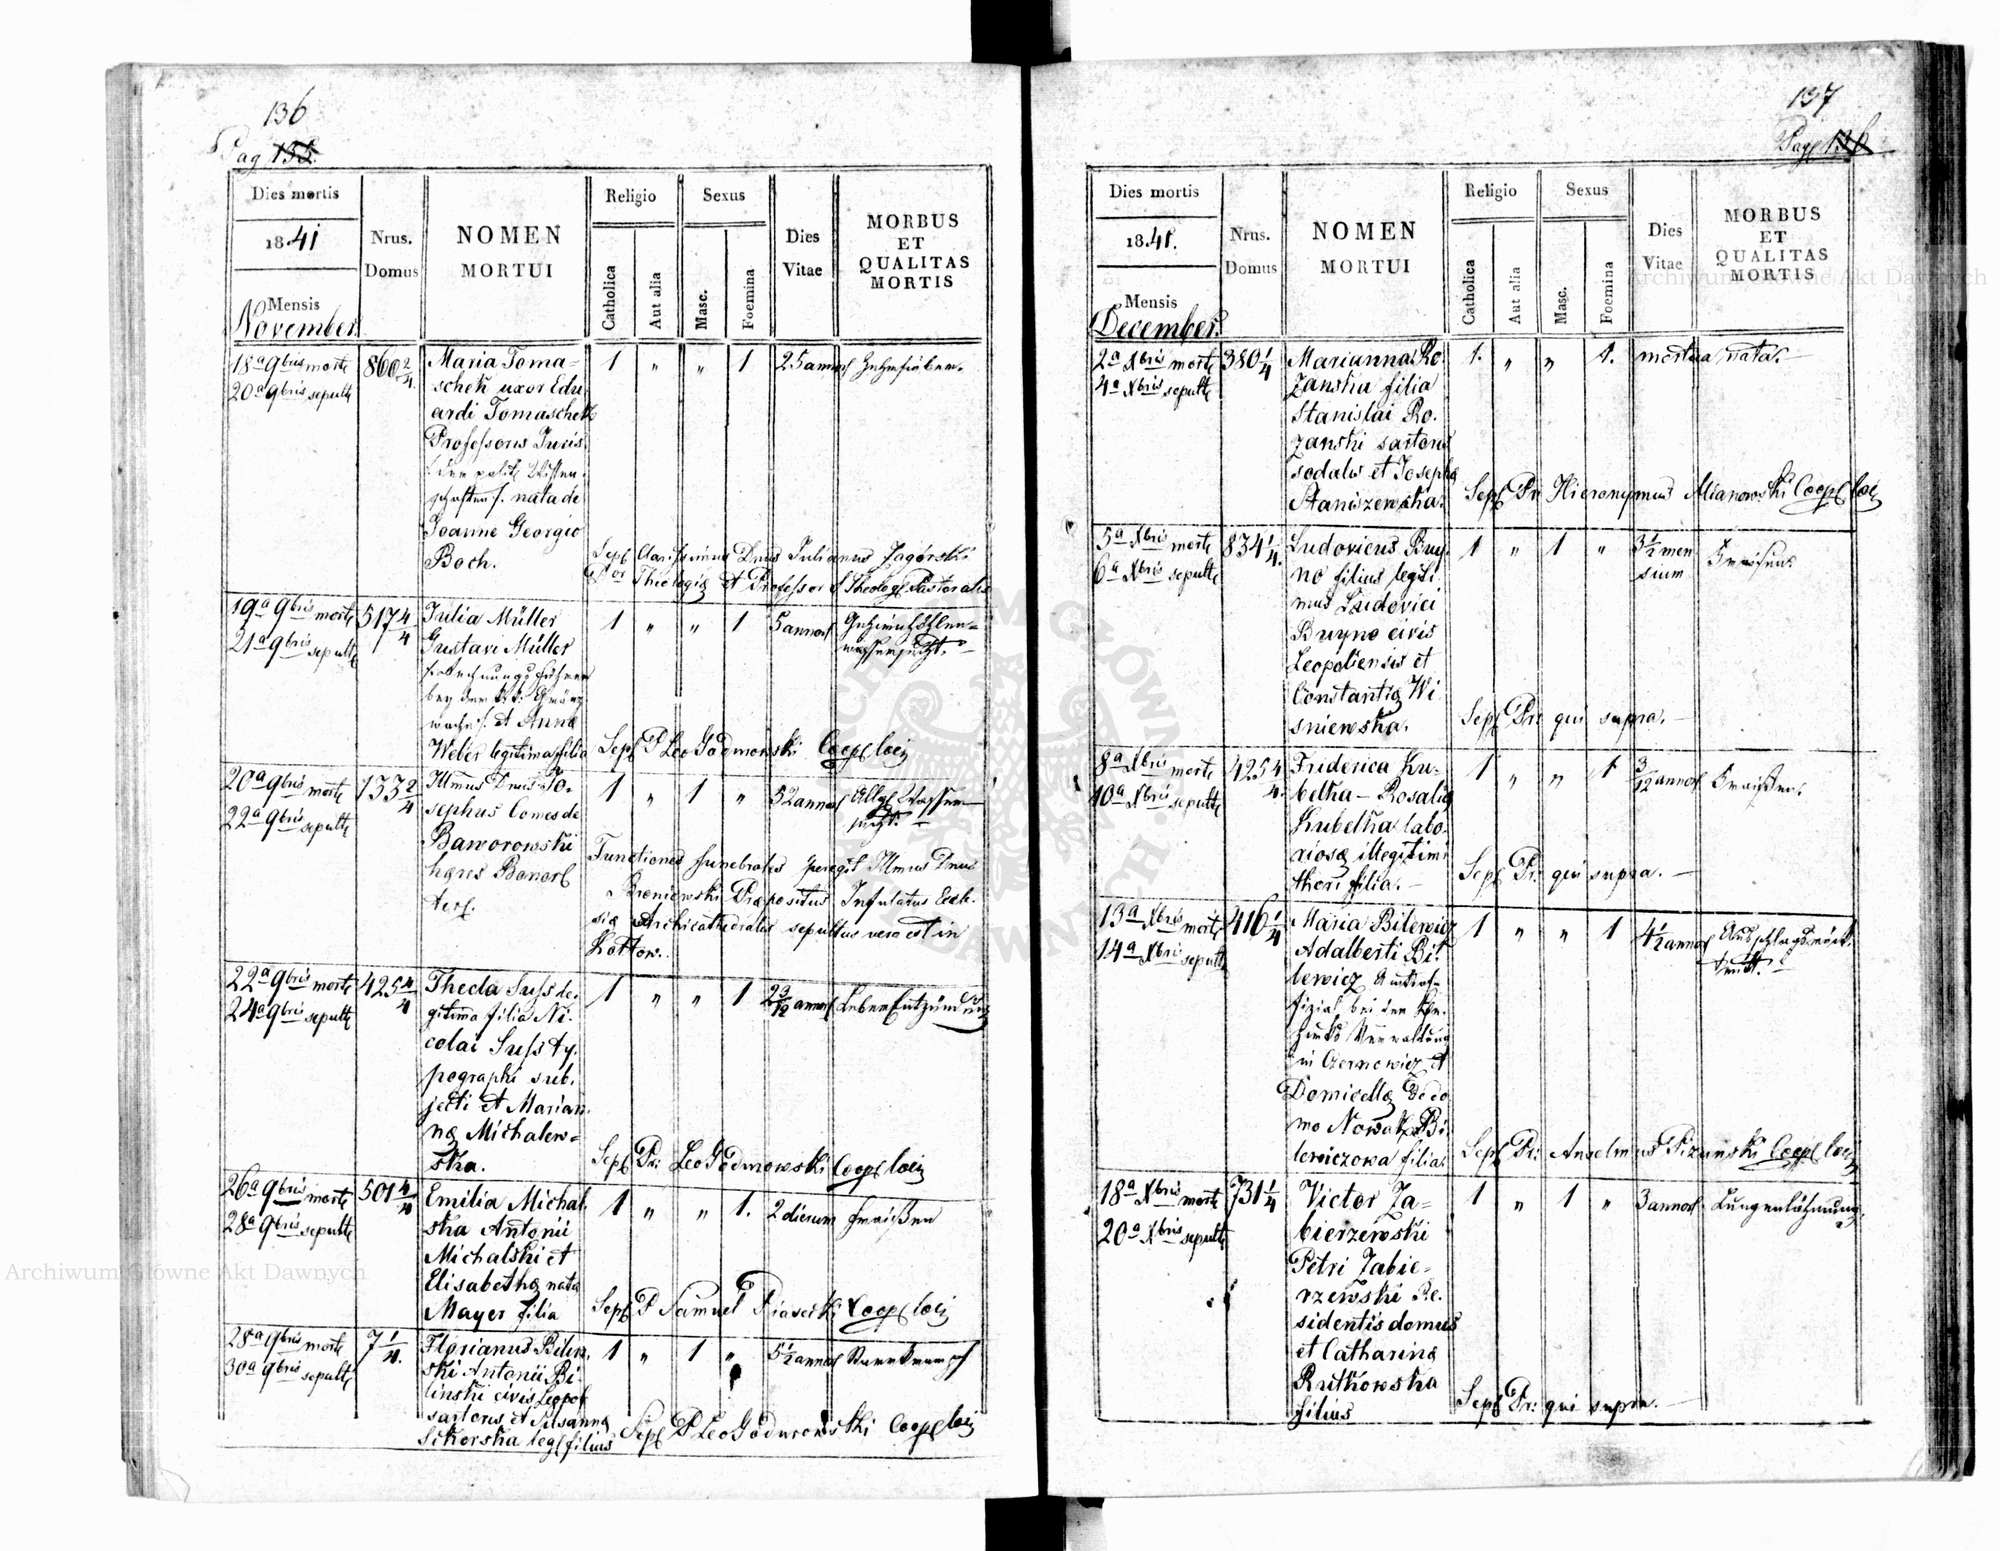 136
Pag 135.
Dies mortis
1841
Mensis
November
Nrus.
Domus
NOMEN
MORTUI
Religio
Catholica
Aut alia
Sexus
Masc.
Foemina
Dies
Vitae
MORBUS
ET
QUALITAS
MORTIS
18a 9bris morte
20a 9bris sepulte
860 2/4
Maria Toma=
schek uxor Edu
ardi Tomaschek
Professoris Juris
nata de
Joanne Georgio
Boch.
1 " " 1
25 annor Zehrfieber.
Sepl Clarissimus Dnus Julianus Zagórski
Theologiæ et Professor Theolog Pastoralis
19a 9bris morte
21a 9bris sepulte
517 4/4
Julia Müller
Gustavi Müller
Rechnungsführer
bey der k.k. Gränz
wache et Anna
Weber legitima filia
1 " " 1
5 annor Gehirnhöhlen=
wassersucht.
Sepl P Leo Godurowski Coopl loci
20a 9bris morte
22a 9bris sepulte
133 2/4
Illmus Dnus Jo=
sephus Comes de
Baworowski
hæres Bonor
1 " 1 "
52 annor Allg Wasser=
sucht.
Functiones funebrales peregit Illmus Dnus
Broniewski Præpositus Infulatus Eccle
siæ Archicathedralis sepultus vero est in
22a 9bris morte
24a 9bris sepulte
425 4/4
Thecla Suss le=
gitima filia Ni=
colai Suss ty=
pographi sub=
jecti et Marian=
næ Michalew=
ska.
1 " " 1
2 3/12 annor Leber Entzündung
Sepl Pr: Leo Godurowski Coopl loci
26a 9bris morte
28a 9bris sepulte
501 4/4
Emilia Michal=
ska Antonii
Michalski et
Elisabethæ nata
Mayer filia
1 " " 1.
2 dierum Fraißen
Sepl P Samuel Piasecki Coopl loci
28a 9bris morte
30a 9bris sepulte
7 1/4.
Florianus Bilin=
ski Antonii Bi=
linski civis Leopol
sartoris et Susanna
Sikorska legl filius
1 " 1 "
5 1/2 annor Starrkrampf
Sepl P Leo Godurowski Coopl loci
137
Pag 136
Dies mortis
1841.
Mensis
December.
Nrus.
Domus
NOMEN
MORTUI
Religio
Catholica
Aut alia
Sexus
Masc.
Foemina
Dies
Vitae
MORBUS
ET
QUALITAS
MORTIS
2a Xbris morte
4a Xbris sepulte
380 1/4
Marianna Ro=
zanska filia
Stanislai Ro=
zanski sartoris
sodalis et Josepha
Staniszewska.
1. " " 1.
mortua nata.
Sepl Pr: Hieronymus Mianowski Coopl loci
5a Xbris morte
6a Xbris sepulte
834 1/4.
Ludovicus Buy=
no filius legiti=
mus Ludovici
Buyno civis
Leopoliensis et
Constantiæ Wi=
sniewska.
1 " 1 "
3 1/2 men
sium
Fraisen.
Sepl Pr: qui supra.
8a Xbris morte
10a Xbris sepulte
425 4/4.
Friderica Ku=
belka - Rosaliæ
Kubelka labo=
riosæ illegitimi
thori filia.
1 " " 1
3/12 annor Fraißen.
Sepl Pr: qui supra.
13a Xbris morte
14a Xbris sepulte
416 1/4
Maria Bilewicz
Adalberti Bi=
lewicz Amtsof=
fizial bei der
Verwaltung
in Czernowicz et
Domicella de do
mo Nowak Bi=
lewiczowa filia.
1 " " 1
4 1/2 annor
Sepl Pr: Anselmus Pizunski Coopl loci
18a Xbris morte
20a Xbris sepulte
731 1/4
Victor Za=
bierzewski
Petri Zabie=
rzewski Re=
sidentis domus
et Catharina
Rutkowska
filius
1 " 1 "
3 annor Lungenlähmung.
Sepl Pr: qui supra.
Archiwum Główne Akt Dawnych
Archiwum Główne Akt Dawnych